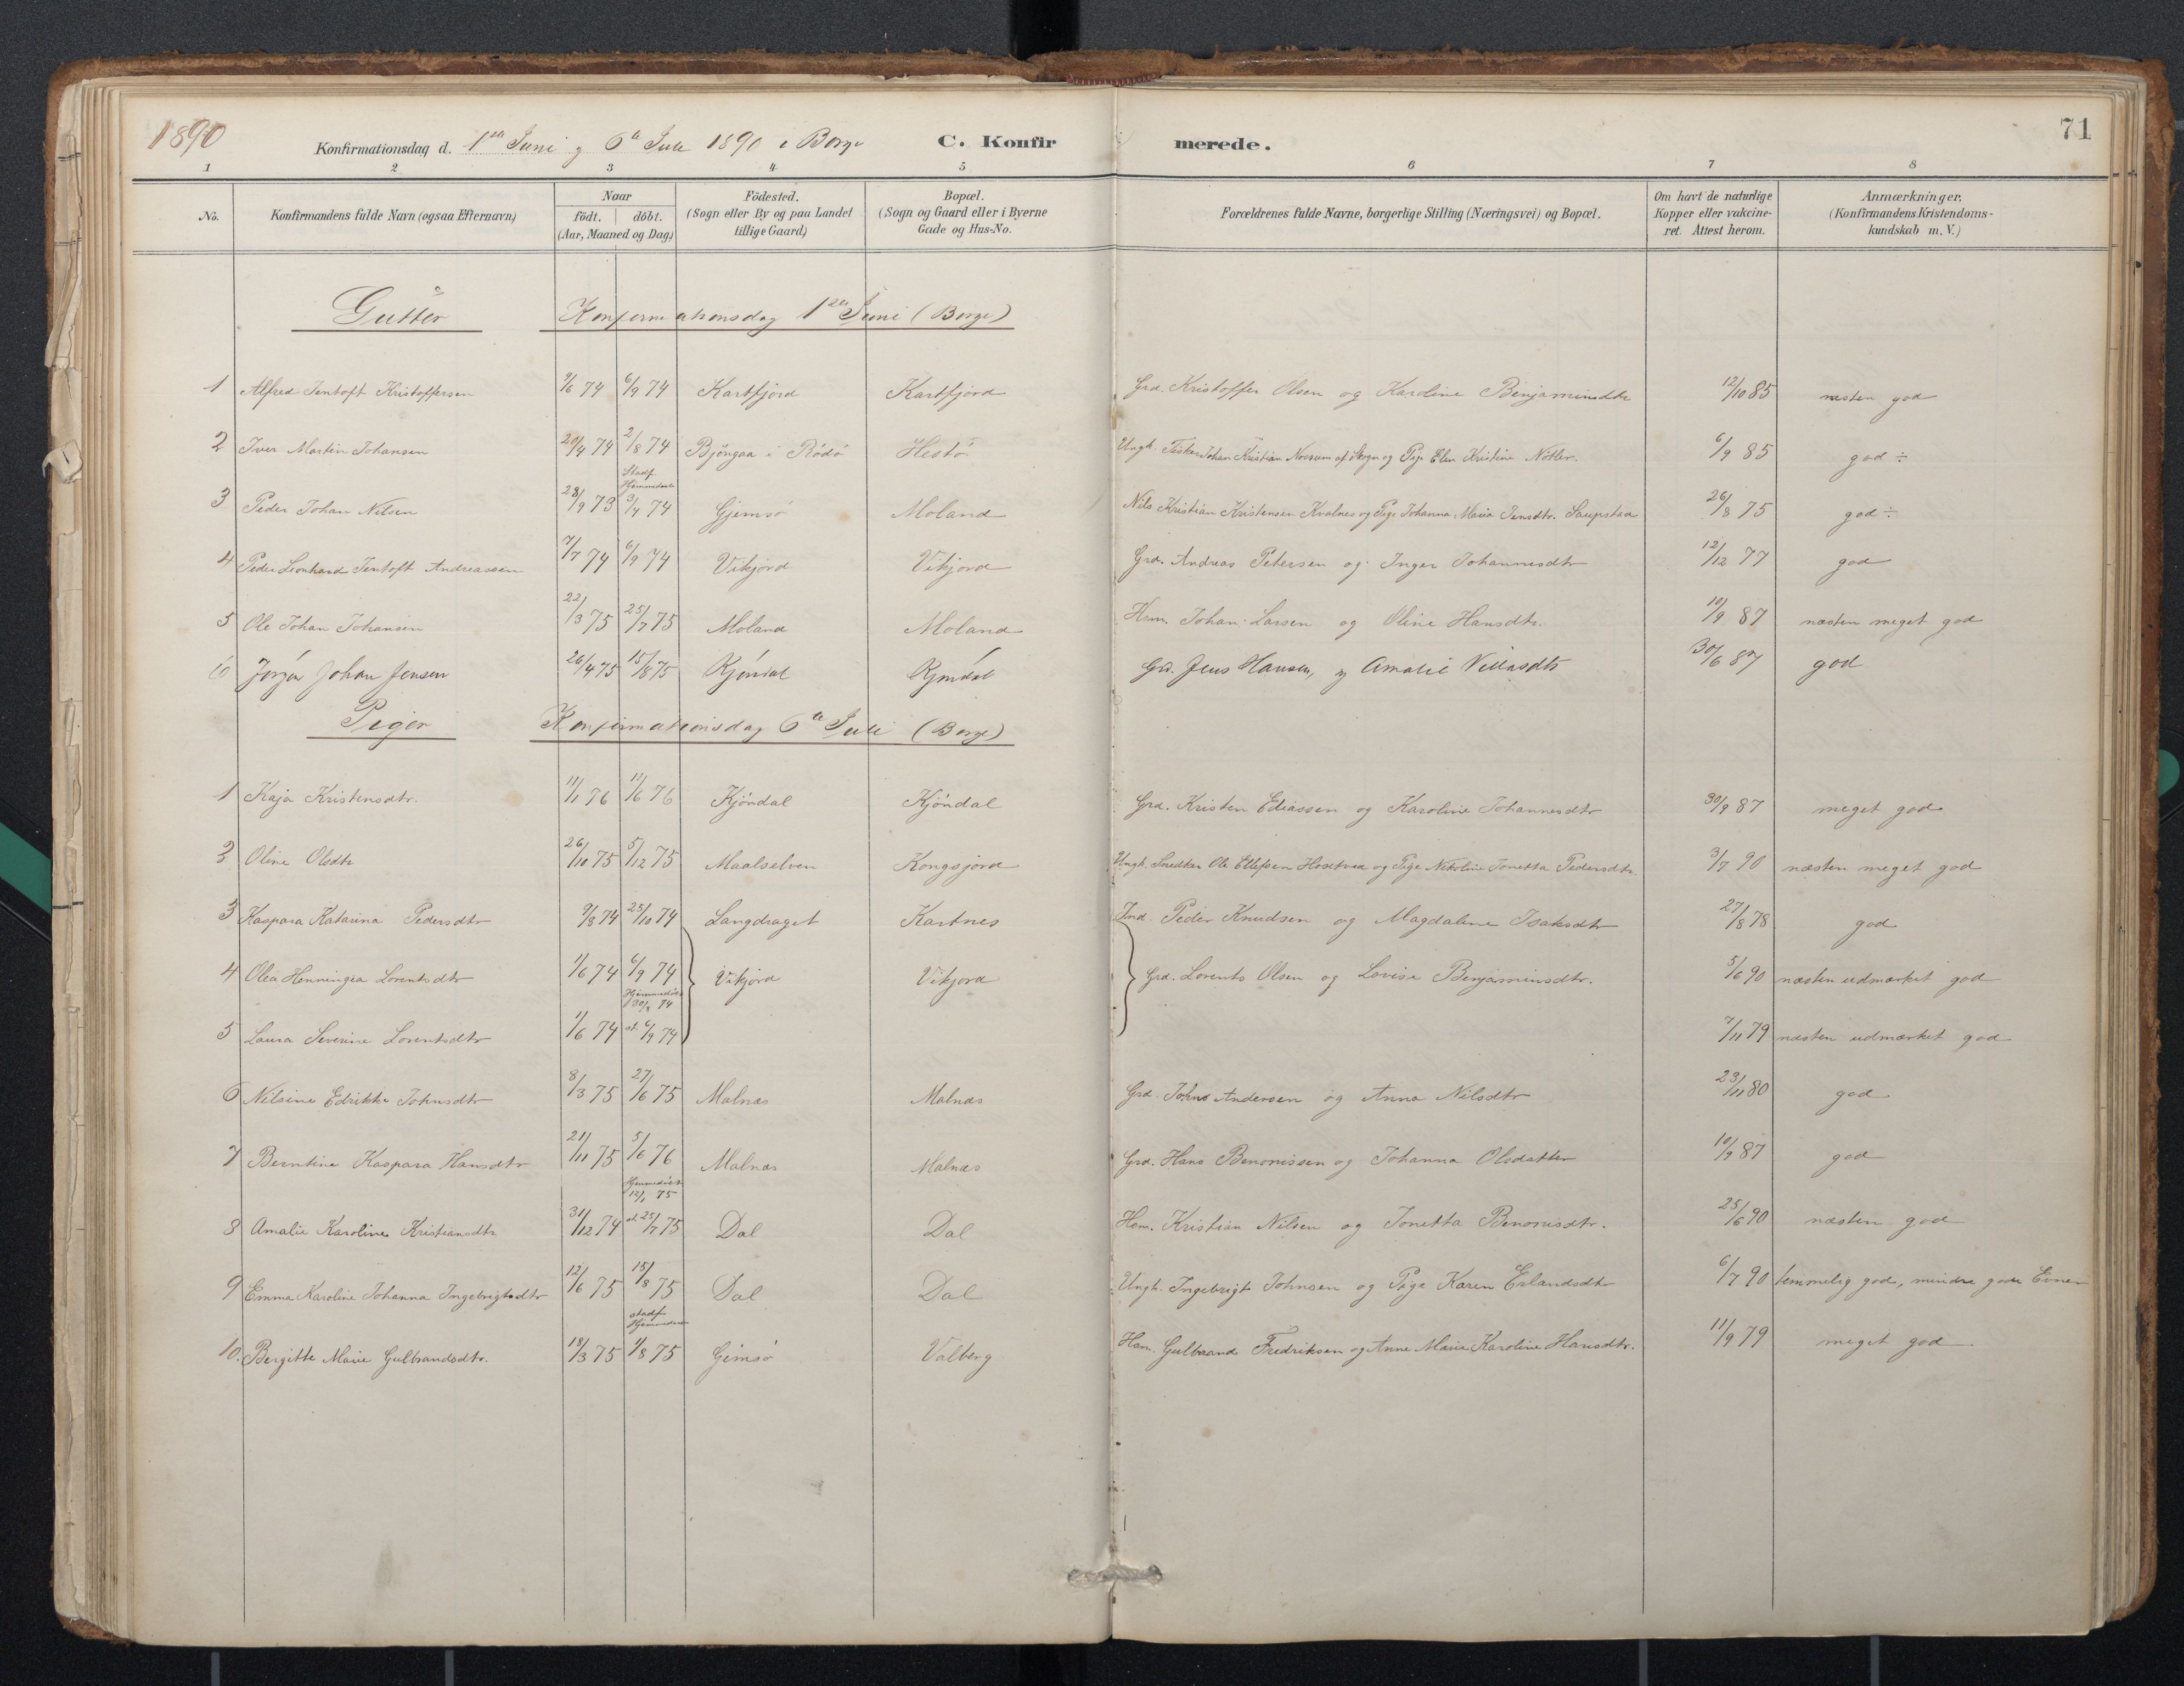 1890
Konfirmationsdag d. 1ste Juni og 6te Juli 1890 i Borge C. Konfirmerede. 71
1 2 3 4 5 6 7 8
No. Konfirmandens fulde Navn (ogsaa Efternavn) Naar födt. döbt. (Aar, Maaned og Dag) Födested. (Sogn eller By og paa Landet tillige Gaard) Bopæl. (Sogn og Gaard eller i Byerne Gade og Hus-No. Forældrenes fulde Navne, borgerlige Stilling (Næringsvei) og Bopæl. Om havt de naturlige Kopper eller vakcineret. Attest herom. Anmærkninger. (Konfirmandens Kristendomskundskab m. V.)
Gutter Konfirmationsdag 1ste Juni (Borge)
1 Alfred Jentoft Kristoffersen 9/6 74 6/9 74 Kartfjord Kartfjord Grd. Kristoffer Olsen og Karoline Benjaminsdtr 12/10 85 næsten god
2 Iver Martin Johansen 20/4 74 2/8 74 Bjöngaa i Rödö Hestö Ungk. Fisker Johan Kristian af Skogn og Pige Elen Kristine 6/9 85 god ÷
3 Peder Johan Nilsen 28/9 73 Stadf. Hjemmedaab 3/4 74 Gjemsö Moland Nils Kristian Kristensen Kvalnes og Pige Johanna Maria Jensdtr. Saupstad 26/8 75 god ÷
4 Peder Leonhard Jentoft Andreassen 7/7 74 6/9 74 Vikjord Vikjord Grd. Andreas Petersen og Inger Johannesdtr 12/12 77 god
5 Ole Johan Johansen 22/3 75 25/7 75 Moland Moland Hsm. Johan Larsen og Oline Hansdtr. 10/9 87 næsten meget god
6 Jörgen Johan Jensen 26/4 75 15/8 75 Kjöndal Kjöndal Grd. Jens Hansen, og Amalie Villasdtr 30/6 87 god
Piger Konfirmationsdag 6te Juli (Borge)
1 Kaja Kristensdtr. 11/1 76 11/6 76 Kjöndal Kjöndal Grd. Kristen Ediassen og Karoline Johannesdtr 30/9 87 meget god
2 Oline Olsdtr 26/10 75 5/12 75 Maalselven Kongsjord Ungk. Snedker Ole Ellefsen Hosetvea og Pige Nikoline Jonetta Pedersdtr. 3/7 90 næsten meget god
3 Kaspara Katarina Pedersdtr 9/8 74 25/10 74 Langdraget Kartnes Ind. Peder Knudsen og Magdalene Isaksdtr 27/8 78 god
4 Olea Henningea Lorentsdtr 1/6 74 6/9 74 Vikjord Vikjord Grd. Lorents Olsen og Lovise Benjaminsdtr. 5/6 90 næsten udmærket god
5 Laura Severine Lorentsdtr 1/6 74 Hjemmedöbt 30/8 74 st. 6/9 74 7/11 79 næsten udmærket god
6 Nilsine Edrikke Johnsdtr 8/3 75 27/6 75 Malnæs Malnæs Grd. Johns Andersen og Anna Nilsdtr 23/11 80 god
7 Berntine Kaspara Hansdtr 21/11 75 5/6 76 Malnæs Malnæs Grd. Hans Benonissen og Johanna Olsdatter 10/9 87 god
8 Amalie Karoline Kristiansdtr 31/12 74 Hjemmedöbt 12/1 75 st. 25/7 75 Dal Dal Hsm. Kristian Nilsen og Jonetta Benonisdtr. 25/6 90 næsten god
9 Emma Karoline Johanna Ingebrigtsdtr 12/6 75 15/8 75 Dal Dal Ungk. Ingebrigt Johnsen og Pige Karen Erlandsdtr 6/7 90 temmelig god, mindre gode Evner
10. Bergitte Marie Gulbrandsdtr. 18/3 75 stadf. Hjemmedaab 1/8 75 Gimsö Valberg Hsm. Gulbrand Fredriksen og Anne Marie Karoline Hansdtr. 11/9 79 meget god